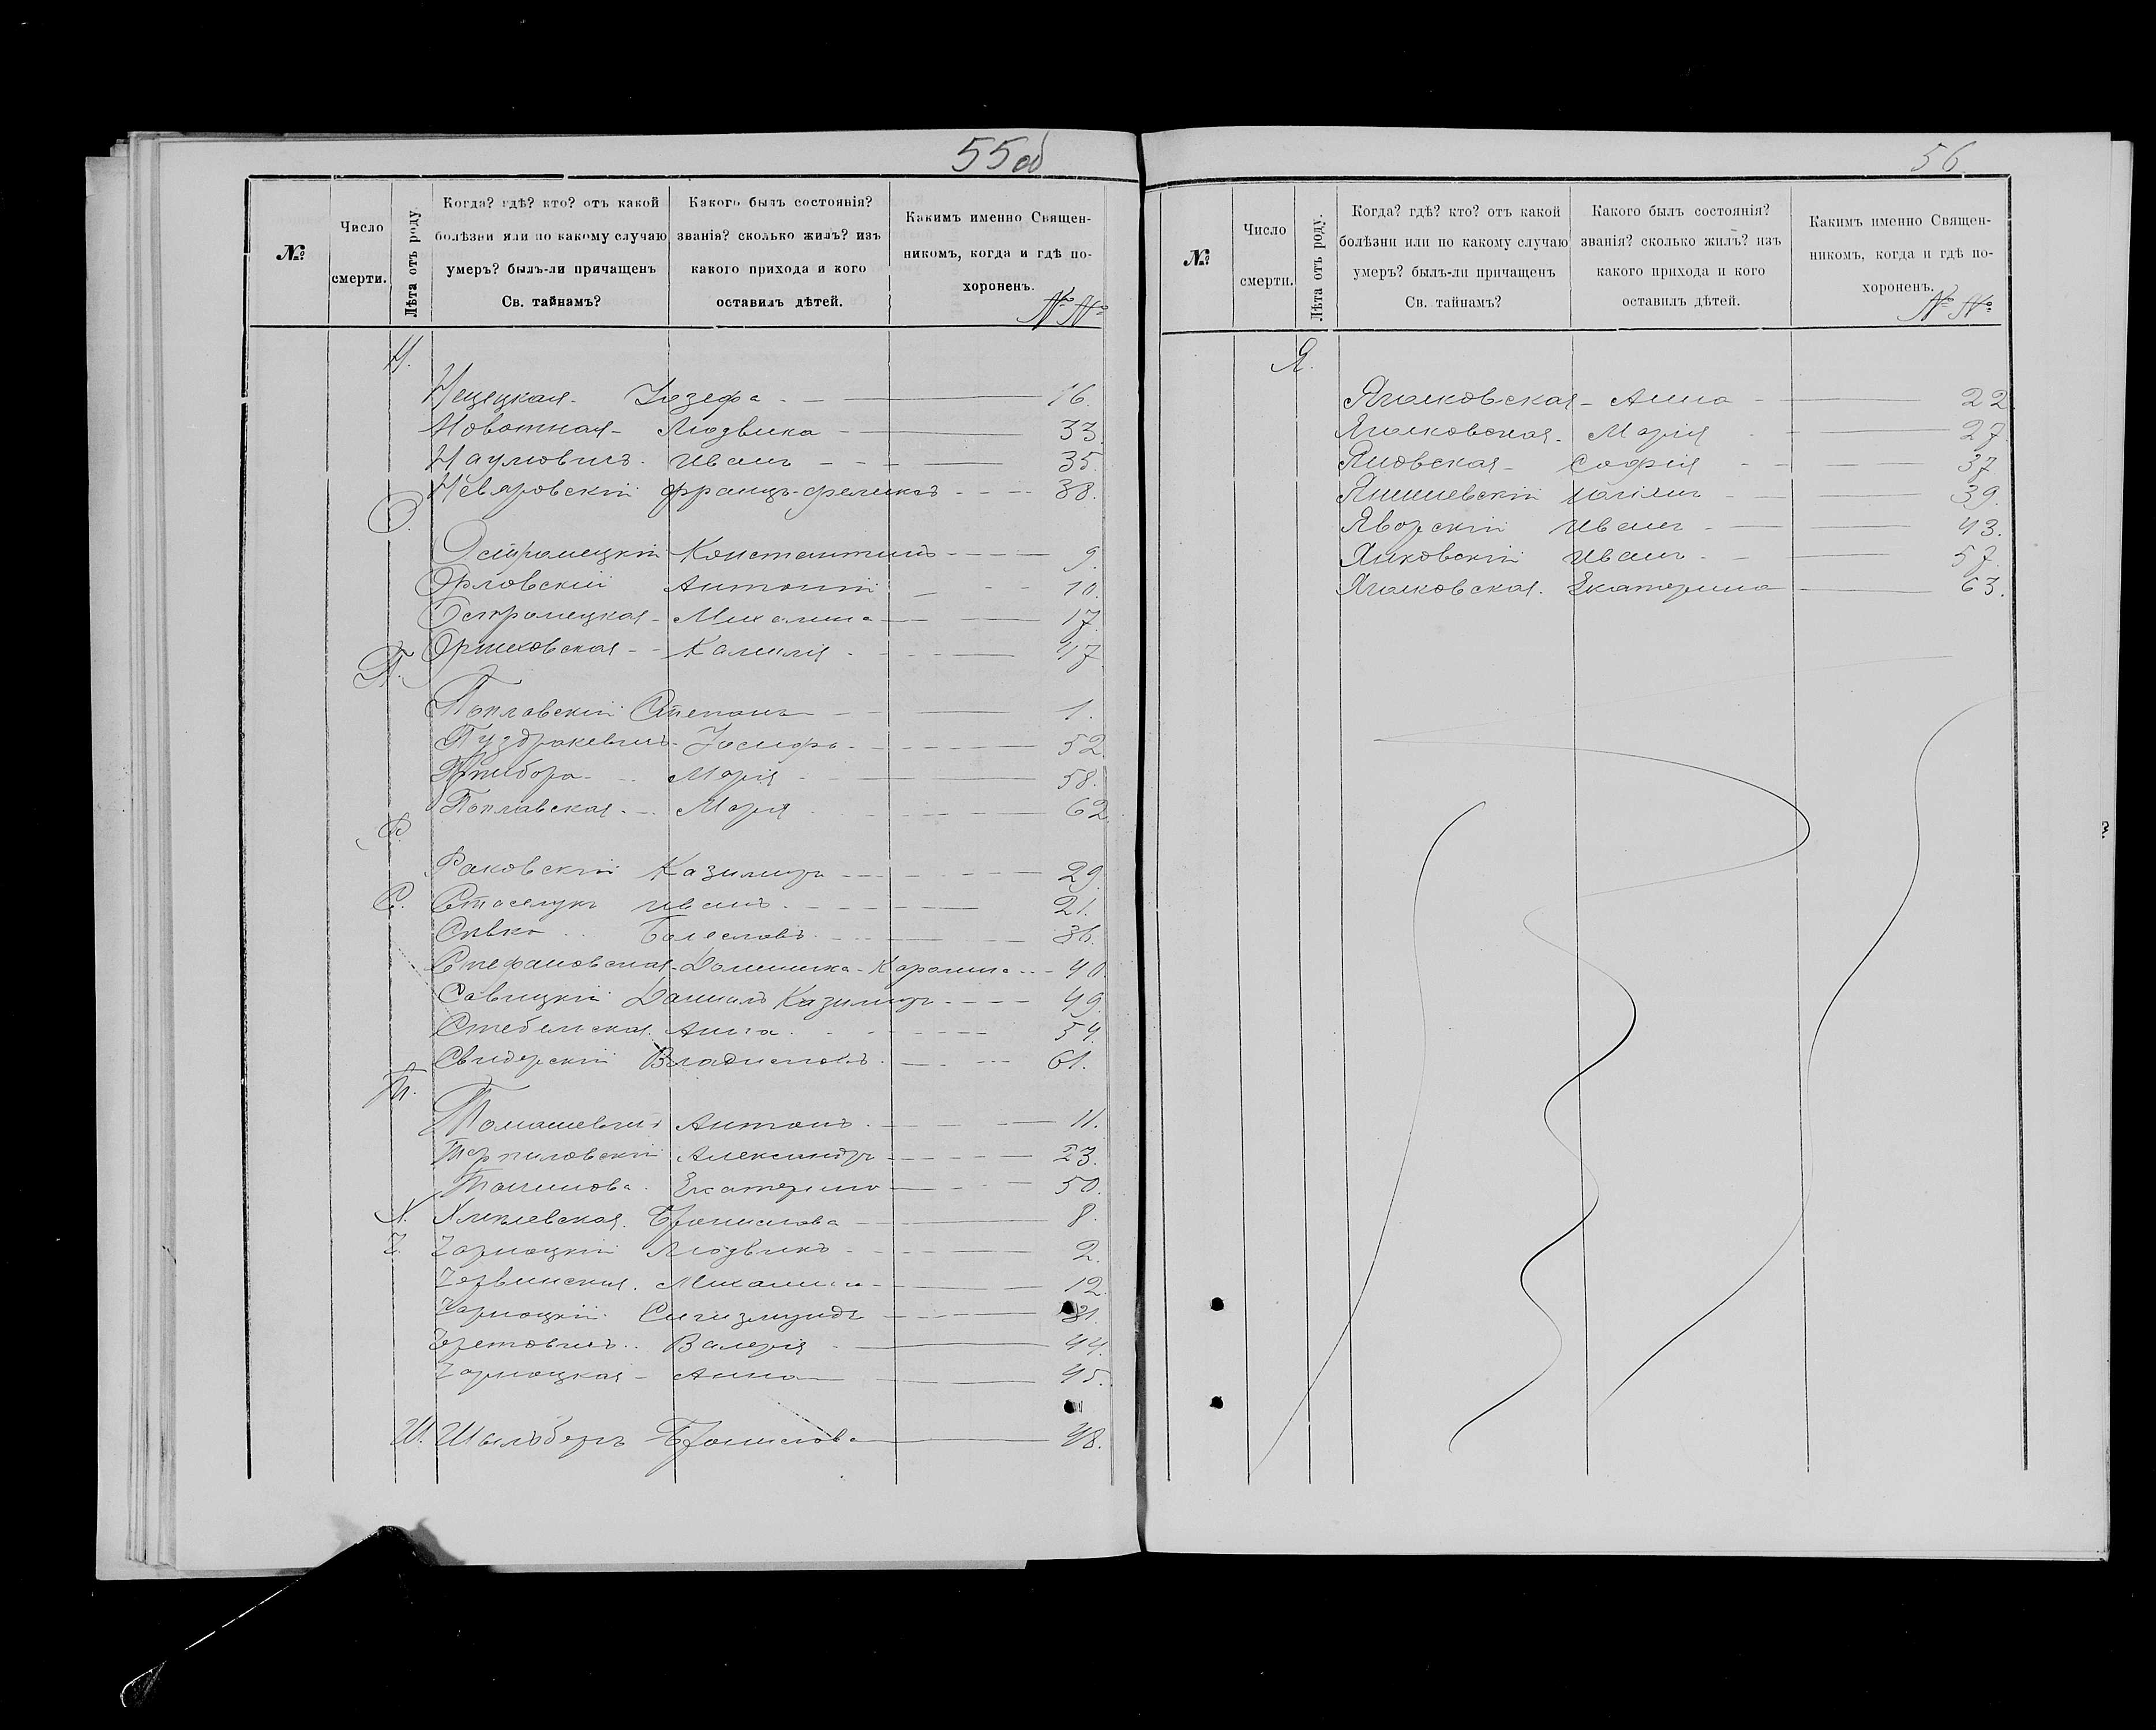 55 об
№
Число
смерти.
Лѣта отъ роду.
Когда? гдѣ? кто? отъ какой
болѣзни или по какому случаю
умеръ? былъ-ли причащенъ
Св. тайнамъ?
Какого былъ состоянія?
званія? сколько жилъ? изъ
какого прихода и кого
оставилъ дѣтей.
Какимъ именно Священ-
никомъ, когда и гдѣ по-
хороненъ.
№ №
Н.
Нецецкая - Іозефа - 16.
Новотная - Людвика - 33.
Наумовичъ - Иванъ - 35.
Невяровскій Францъ-Феликсъ - 38.
О.
Остромецкій Константинъ - 9.
Орловскій Антоній - 10.
Остромецкая - Михалина - 17.
Оржеховская - Камилія - 47.
П.
Поплавскій Степанъ - 1.
Пуздракевичъ - Іосифъ - 52.
Пржибора - Марія - 58.
Поплавская - Марія - 62.
Р.
Раковскій Казимиръ - 29.
С. Стаселукъ Иванъ - 21.
Сивко Болеславъ - 36.
Стефановская - Доминика-Каролина - 40.
Савицкій Даніилъ Казимиръ - 49.
Стебельская Анна - 54.
Свидерскій Владиславъ - 61.
Т.
Томашевичъ Антонъ - 11.
Терпиловскій Александръ - 23.
Екатерина - 50.
Х. Хмѣлевская Бронислава - 8.
Ч. Чарноцкій Людвикъ - 2.
Червинская Михалина - 12.
Чарноцкій Сигизмундъ - 31.
Чретовичъ Валерія - 44.
Чарноцкая - Анна - 45.
Ш. Шильберъ Бронислава - 48.
56
№
Число
смерти.
Лѣта отъ роду.
Когда? гдѣ? кто? отъ какой
болѣзни или по какому случаю
умеръ? былъ-ли причащенъ
Св. тайнамъ?
Какого былъ состоянія?
званія? сколько жилъ? изъ
какого прихода и кого
оставилъ дѣтей.
Какимъ именно Священ-
никомъ, когда и гдѣ по-
хороненъ.
№ №
Я.
Ягалковская - Анна - 22.
Ягалковская - Марія - 27.
Яновская - Софія - 37.
Янишевскій Юліянъ - 39.
Яворскій Иванъ - 43.
Янковскій Иванъ - 57.
Ягалковская Екатерина - 63.